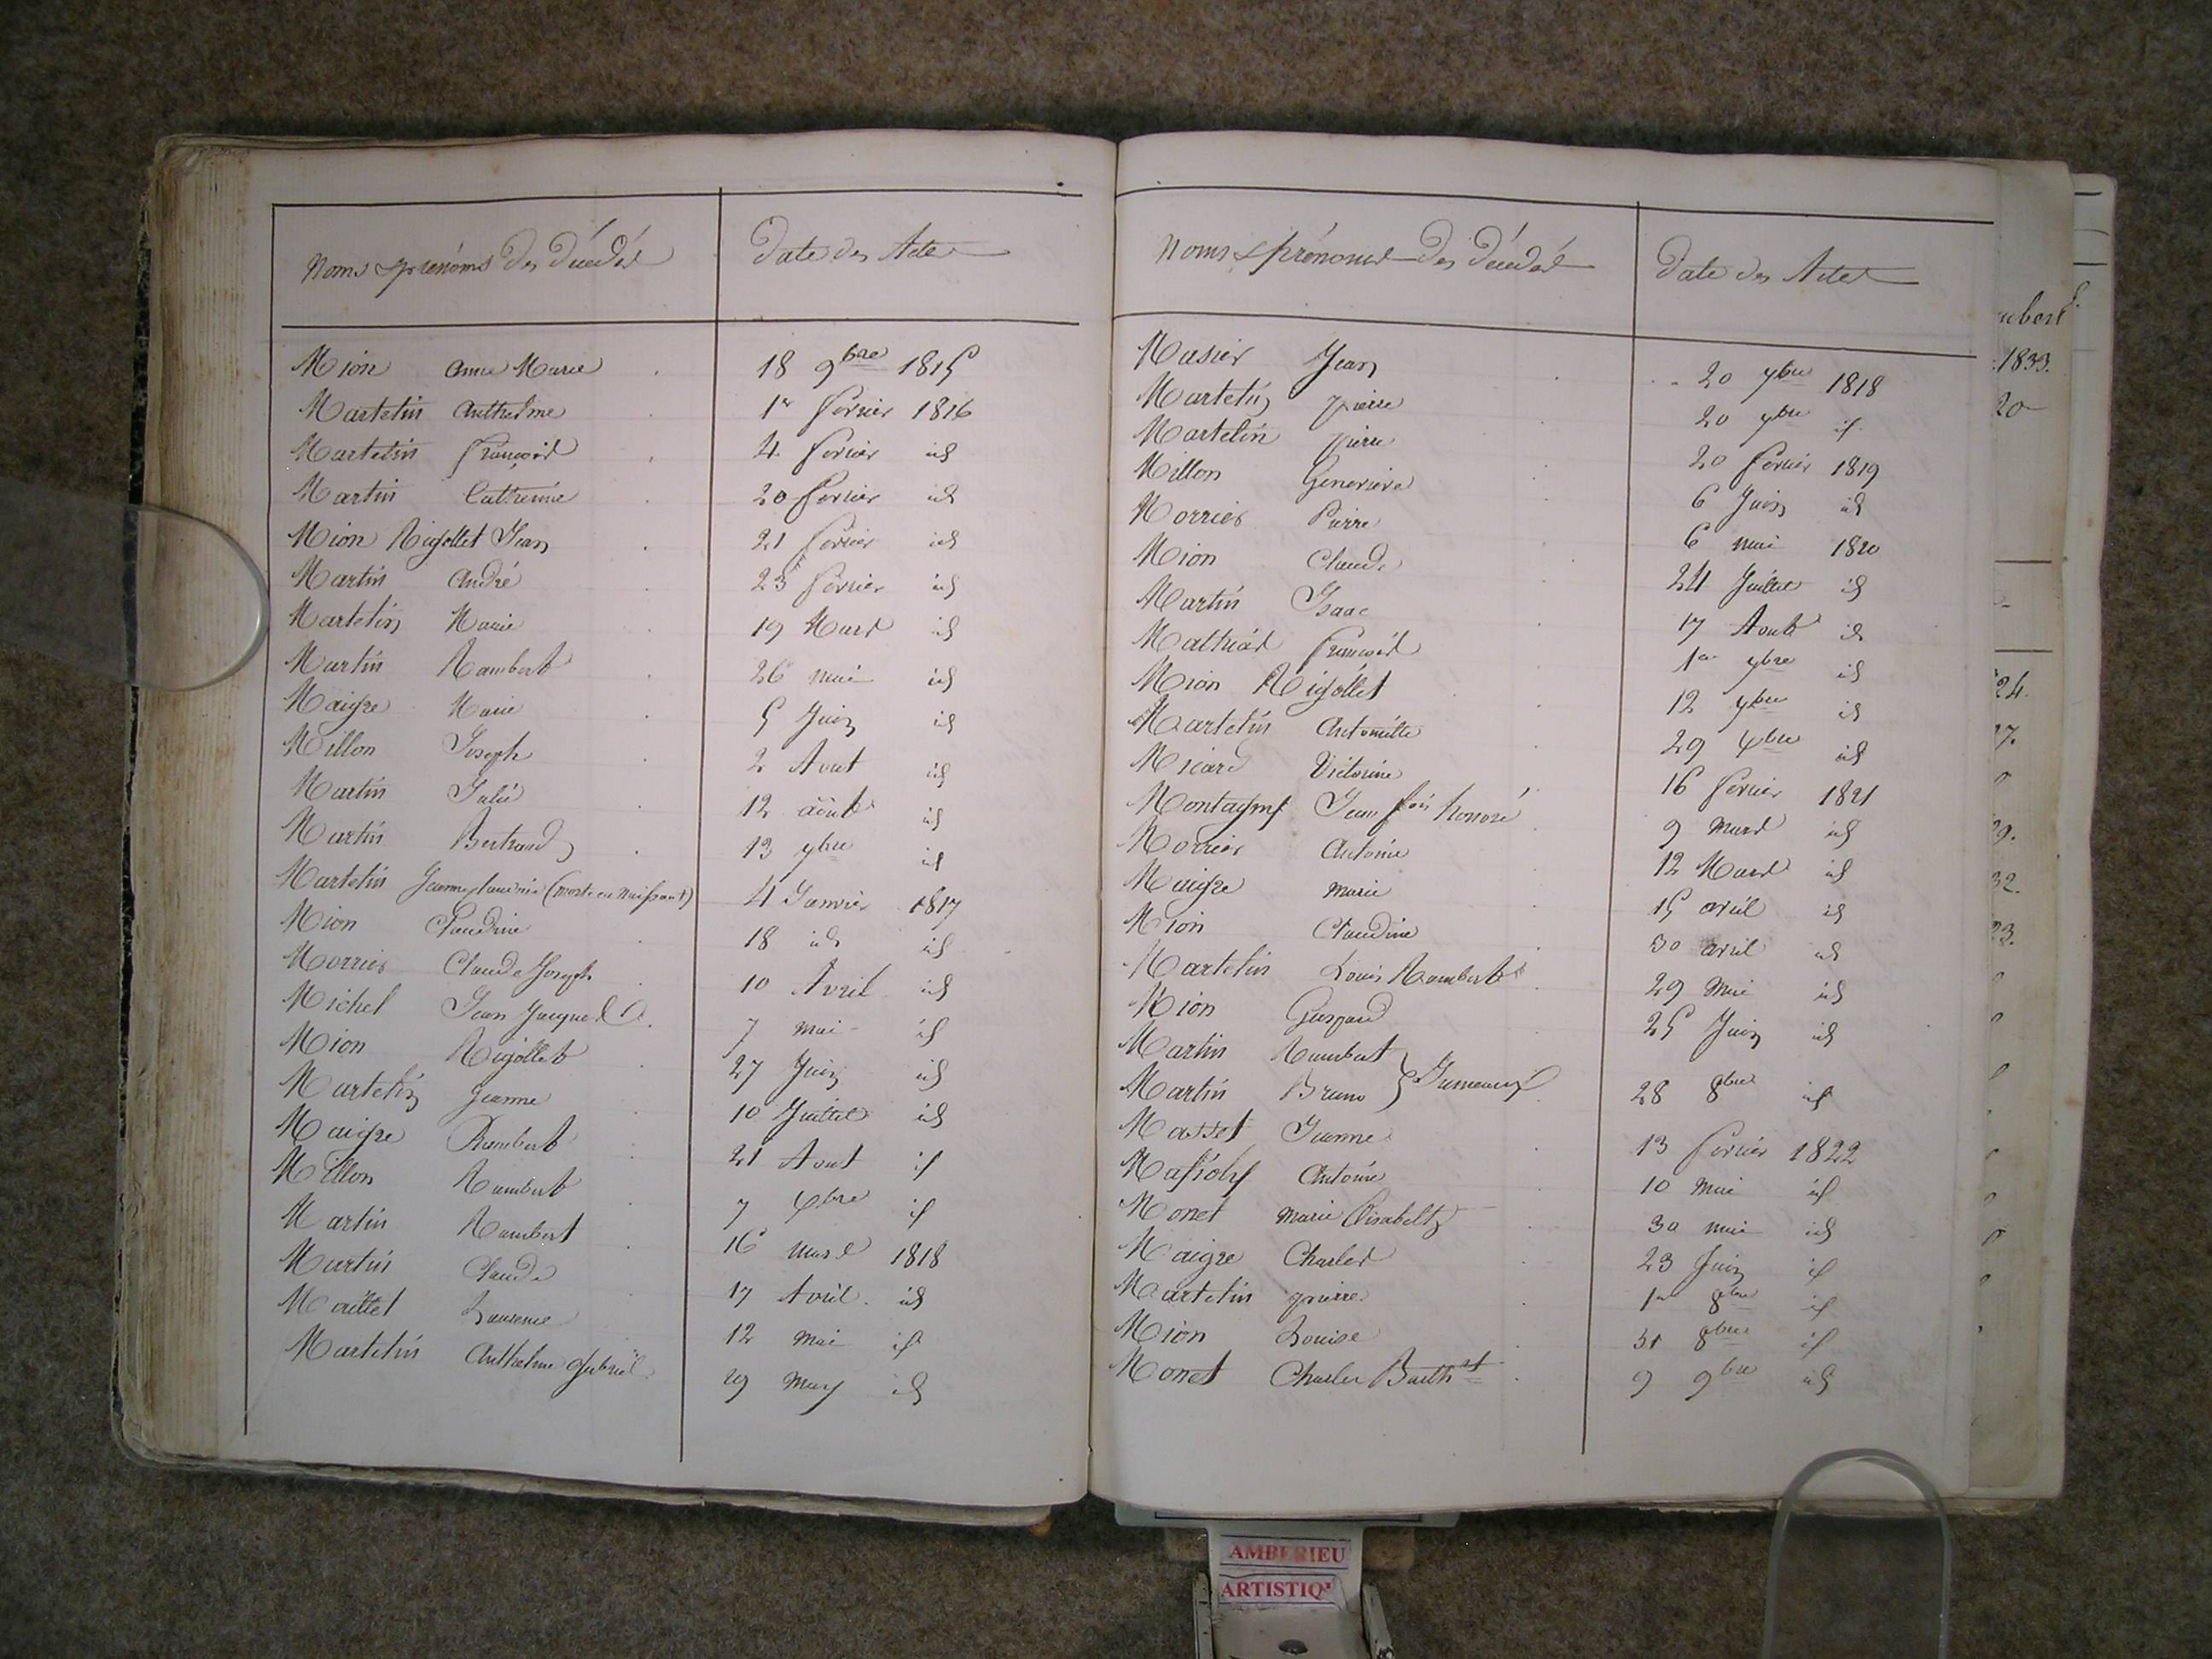 Noms & prénoms des Décédés Date des Actes
Mion Anne Marie 18 9bre 1815
Martelin Anthelme 1er fevrier 1816
Martelin François 4 fevrier id
Martin Catherine 20 fevrier id
Mion Rigollet Jean 21 fevrier id
Martin André 23 fevrier id
Martelin Marie 19 Mars id
Martin Rambert 26 mai id
Maigre Marie 5 Juin id
Millon Joseph 2 Aout id
Martin Julie 12 aout id
Martin Bertrand 13 7bre id
Martelin Jeanne Claudine (morte en naissant) 4 Janvier 1817
Mion Claudine 18 id id
Morrier Claude Joseph 10 Avril id
Michel Jean Jacques 7 mai id
Mion Rigollet 27 Juin id
Martelin Jeanne 10 Juillet id
Maigre Rambert 21 Aout id
Millon Rambert 7 Xbre id
Martin Rambert 16 mars 1818
Martin Claude 17 Avril id
Maillet Laurence 12 mai id
Martelin Anthelme Gabriel 29 May id
Noms & prénoms des Décédés Date des Actes
Masier Jean 20 7bre 1818
Martelin pierre 20 7bre id
Martelin pierre 20 fevrier 1819
Millon Genevieve 6 Juin id
Morrier Pierre 6 mai 1820
Mion Claude 24 Juillet id
Martin Isaac 17 Aout id
Mathias François 1er 7bre id
Mion Rigollet 12 7bre id
Martelin Antoinette 29 Xbre id
Micard Victorine 16 fevrier 1821
Jean fois honoré 9 Mars id
Morrier Antoine 12 Mars id
Maigre Marie 15 avril id
Mion Claudine 30 avril id
Martelin Louis Rambert 29 Mai id
Mion Gaspard 25 Juin id
Martin Rambert
Martin Bruno } Jumeaux 28 8bre id
Masset Jeanne 13 fevrier 1822
Antoine 10 mai id
Monet Marie Elisabeth 30 mai id
Maigre Charles 23 Juin id
Martelin pierre 1er 8bre id
Mion Louise 31 8bre id
Monet Charles Barth 9 9bre id
1833.
20
24.
27.
29.
32.
33.
AMBERIEU
ARTISTIQ